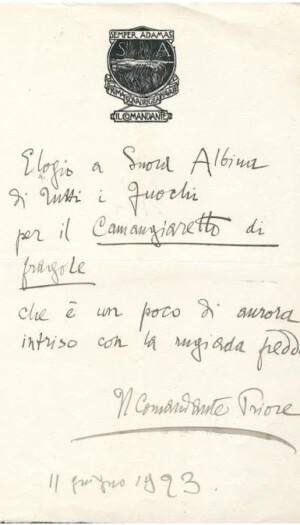 SEMPER ADAMAS
S A
IL COMANDANTE
Elogio a Suora Albina
di tutti i Fuochi
per il Camangiaretto di
fragole
che è un poco di aurora
intriso con la rugiada fredd
Il Comandante Priore
11 giugno 1923.